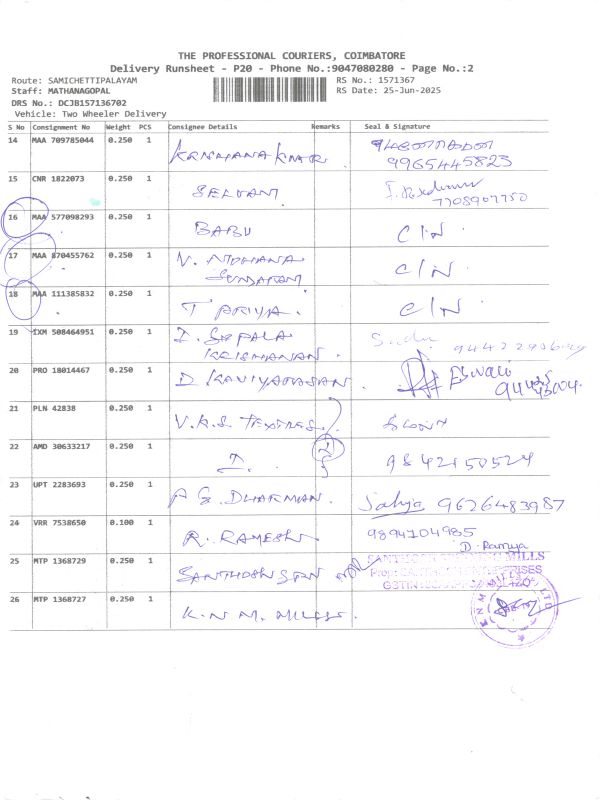 THE PROFESSIONAL COURIERS, COIMBATORE
Delivery Runsheet - P20 - Phone No.:9047080280 - Page No.:2
Route: SAMICHETTIPALAYAM RS No.: 1571367
Staff: MATHANAGOPAL RS Date: 25-Jun-2025
DRS No.: DCJB157136702
Vehicle: Two Wheeler Delivery
S No Consignment No Weight PCS Consignee Details Remarks Seal & Signature
14 MAA 709785044 0.250 1
9965445823
15 CNR 1822073 0.250 1 SELVAM
7708907750
16 MAA 577098293 0.250 1 BABU C/N
17 MAA 870455762 0.250 1 V. C/N
18 MAA 111385832 0.250 1 T PRIYA. C/N
19 IXM 508464951 0.250 1
20 PRO 18014467 0.250 1 D Eswari
21 PLN 42838 0.250 1 V.K.S. TEXTILES
22 AMD 30633217 0.250 1 2 9842150524
23 UPT 2283693 0.250 1 DHARMAN. Sathya 9626483987
24 VRR 7538650 0.100 1 R. RAMESH 9894104985
D. Ramya
25 MTP 1368729 0.250 1 MILLS
26 MTP 1368727 0.250 1 K.N.M. MILLS.